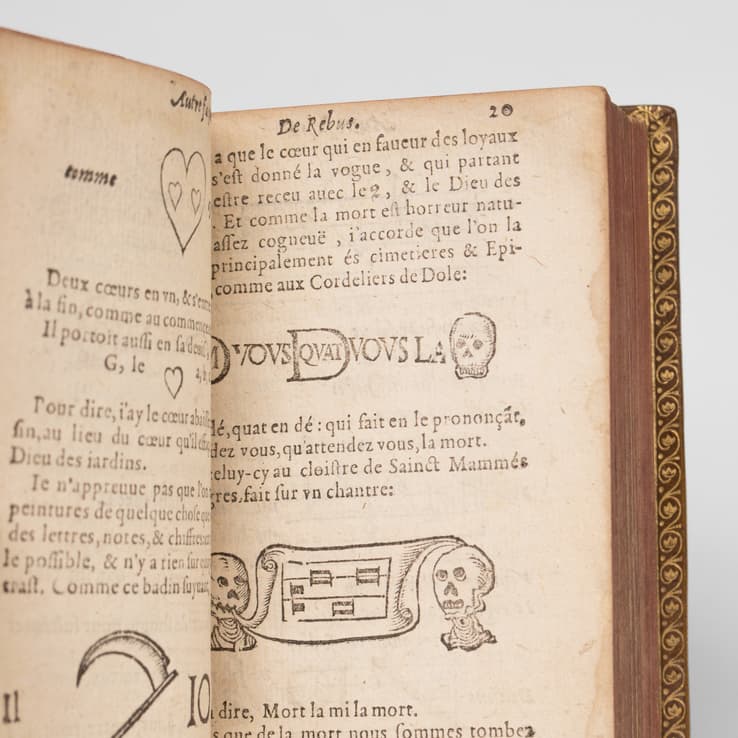 Autre
comme
Deux cœurs en vn, & s'en
à la fin, comme au commence
Il portoit aussi en sa deuise,
G, le
Pour dire, i'ay le cœur abaissé
fin, au lieu du cœur qu'il
Dieu des iardins.
Ie n'appreuue pas que l'on
peintures de quelque chose que
des lettres, notes, & chiffres
le possible, & n'y a rien sur
trast. Comme ce badin suyuant
Il IO
De Rebus. 20
a que le cœur qui en faueur des loyaux
s'est donné la vogue, & qui partant
estre receu auec le 2, & le Dieu des
. Et comme la mort est horreur natu-
assez cogneuë, i'accorde que l'on la
principalement és cimetieres & Epi-
, comme aux Cordeliers de Dole:
D VOVS QVAT D VOVS LA
dé, quat en dé: qui fait en le prononçãt,
dez vous, qu'attendez vous, la mort.
celuy-cy au cloistre de Sainct Mammés
gres, fait sur vn chantre:
dire, Mort la mi la mort.
que de la mort nous sommes tombez